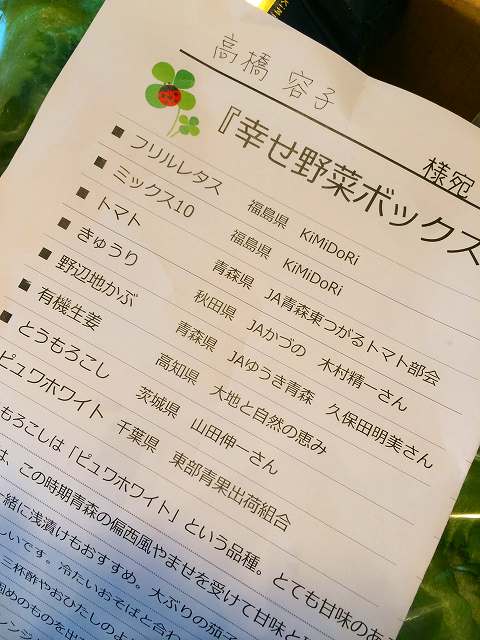 高橋 容子
様宛
『幸せ野菜ボックス
■ フリルレタス 福島県 KiMiDoRi
■ ミックス10 福島県 KiMiDoRi
■ トマト 青森県 JA青森東つがるトマト部会
■ きゅうり 秋田県 JAかづの 木村精一さん
■ 野辺地かぶ 青森県 JAゆうき青森 久保田明美さん
■ 有機生姜 高知県 大地と自然の恵み
■ とうもろこし 茨城県 山田伸一さん
ピュワホワイト 千葉県 東部青果出荷組合
もろこしは「ピュワホワイト」という品種。とても甘味のあ
は、この時期青森の偏西風やませを受けて甘味と
一緒に浅漬けもおすすめ。大ぶりの茄子
しいです。冷たいおそばと合わ
三杯酢やおひたしのよ
固めのものを出
レンジ